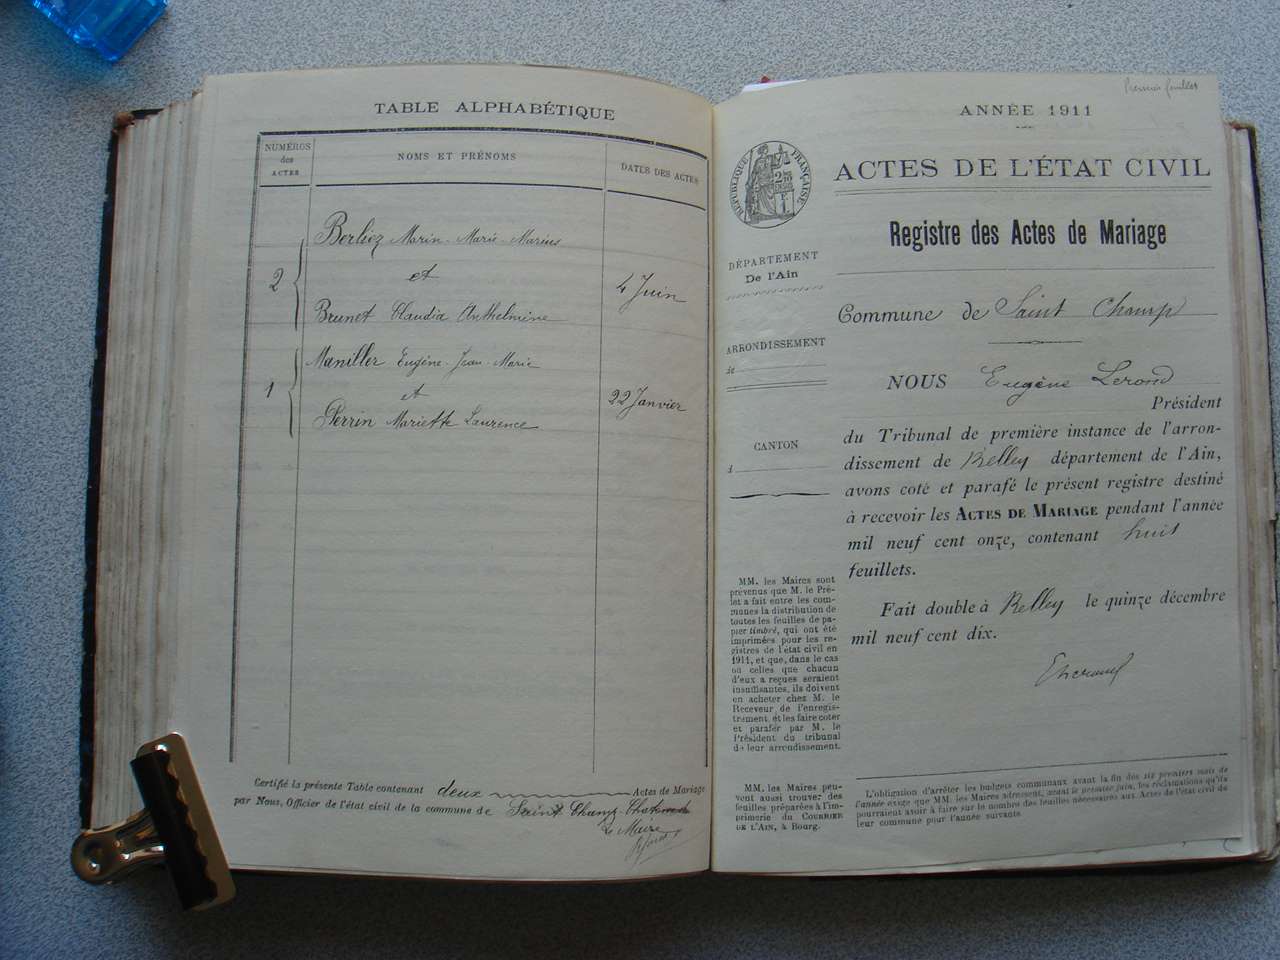 TABLE ALPHABÉTIQUE
NUMÉROS
des
ACTES
NOMS ET PRÉNOMS
DATES DES ACTES
Berliez Marin-Marie-Marius
2
et
4 Juin
Brunet Claudia Anthelmine
Maniller Eugène-Jean-Marie
1
et
22 Janvier
Perrin Mariette Laurence
Certifié la présente Table contenant deux Actes de Mariage
par Nous, Officier de l'état civil de la commune de Saint Champ
Le Maire
Premier feuillet
ANNÉE 1911
RÉPUBLIQUE FRANÇAISE
ACTES DE L'ÉTAT CIVIL
Registre des Actes de Mariage
DÉPARTEMENT
De l'Ain
Commune de Saint Champ
ARRONDISSEMENT
de
CANTON
d
NOUS Eugène Lerond
Président
du Tribunal de première instance de l'arron-
dissement de Belley département de l'Ain,
avons coté et parafé le présent registre destiné
à recevoir les ACTES DE MARIAGE pendant l'année
mil neuf cent onze, contenant huit
feuillets.
Fait double à Belley le quinze décembre
mil neuf cent dix.
MM. les Maires sont
prévenus que M. le Pré-
fet a fait entre les com-
munes la distribution de
toutes les feuilles de pa-
pier timbré, qui ont été
imprimées pour les re-
gistres de l'état civil en
1911, et que, dans le cas
où celles que chacun
d'eux a reçues seraient
insuffisantes, ils doivent
en acheter chez M. le
Receveur de l'enregis-
trement, et les faire coter
et parafer par M. le
Président du tribunal
de leur arrondissement.
MM. les Maires peu-
vent aussi trouver des
feuilles préparées à l'im-
primerie du COURRIER
DE L'AIN, à Bourg.
L'obligation d'arrêter les budgets communaux avant la fin des six premiers mois de
l'année exige que MM. les Maires adressent, avant le premier juin, les réclamations qu'ils
pourraient avoir à faire sur le nombre des feuilles nécessaires aux Actes de l'état civil de
leur commune pour l'année suivante.